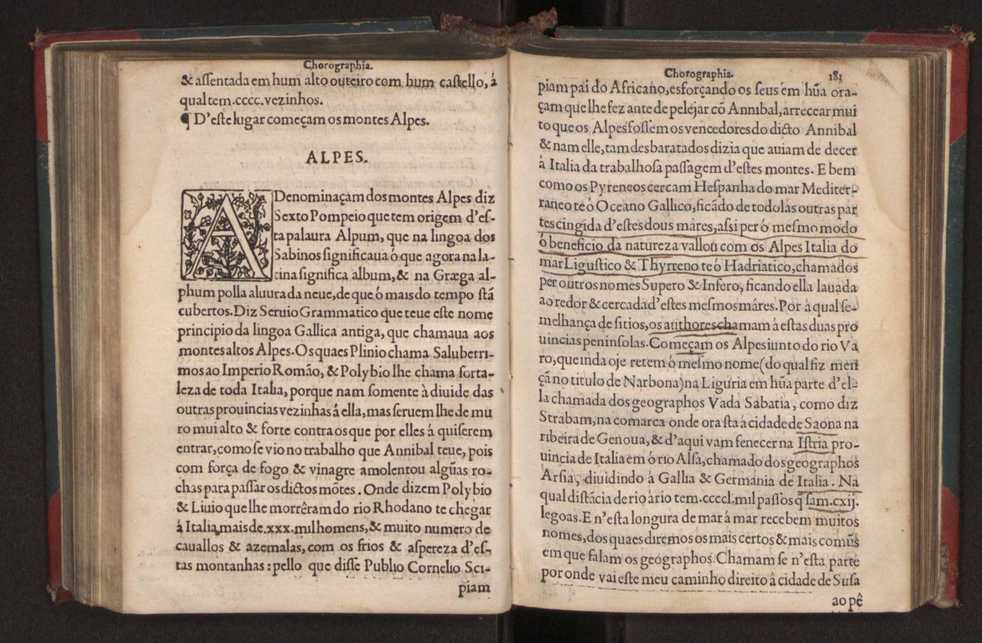 Chorographia.
& assentada em hum alto outeiro com hum castello, á
qual tem .cccc. vezinhos.
¶ D'este lugar começam os montes Alpes.
ALPES.
A Denominaçam dos montes Alpes diz
Sexto Pompeio que tem origem d'es-
ta palaura Alpum, que na lingoa dos
Sabinos significaua ó que agora na la-
tina significa album, & na Græga al-
phum polla aluura da neue, de que ó mais do tempo stã
cubertos. Diz Seruio Grammatico que teue este nome
principio da lingoa Gallica antiga, que chamaua aos
montes altos Alpes. Os quaes Plinio chama Saluberri-
mos ao Imperio Romão, & Polybio lhe chama forta-
leza de toda Italia, porque nam somente à diuide das
outras prouincias vezinhas á ella, mas seruem lhe de mu
ro mui alto & forte contra os que por elles á quiserem
entrar, como se vio no trabalho que Annibal teue, pois
com força de fogo & vinagre amolentou algũas ro-
chas para passar os dictos mõtes. Onde dizem Polybio
& Liuio que lhe morrêram do rio Rhodano te chegar
á Italia, mais de .xxx. mil homens, & muito numero de
cauallos & azemalas, com os frios & aspereza d'es-
tas montanhas: pello que disse Publio Cornelio Sci-
piam
Chorographia. 181
piam pai do Africano, esforçando os seus em hũa ora-
çam que lhe fez ante de pelejar cõ Annibal, arrecear mui
to que os Alpes fossem os vencedores do dicto Annibal
& nam elle, tam desbaratados dizia que auiam de decer
à Italia da trabalhosa passagem d'estes montes. E bem
como os Pyreneos cercam Hespanha do mar Mediter-
raneo te ó Oceano Gallico, ficãdo de todolas outras par
tes cingida d'estes dous máres, assi per ó mesmo modo
ó beneficio da natureza vallou com os Alpes Italia do
mar Ligustico & Thyrreno te ó Hadriatico, chamados
per outros nomes Supero & Infero, ficando ella lauada
ao redor & cercada d'estes mesmos máres. Por á qual se-
melhança de sitios, os authores chamam à estas duas pro
uincias peninsolas. Começam os Alpes iunto do rio Va
ro, que inda oje retem ó mesmo nome (do qual fiz men
çã no titulo de Narbona) na Liguria em hũa parte d'el-
la chamada dos geographos Vada Sabatia, como diz
Strabam, na comarca onde ora stà à cidade de Saona na
ribeira de Genoua, & d'aqui vam fenecer na Istria pro-
uincia de Italia em ó rio Alsa, chamado dos geographos
Arsia, diuidindo à Gallia & Germania de Italia. Na
qual distãcia de rio à rio tem .ccccl. mil passos q̃ sam .cxij.
legoas. E n'esta longura de mar á mar recebem muitos
nomes, dos quaes diremos os mais certos & mais comũs
em que falam os geographos. Chamam se n'esta parte
por onde vai este meu caminho direito á cidade de Susa
ao pê